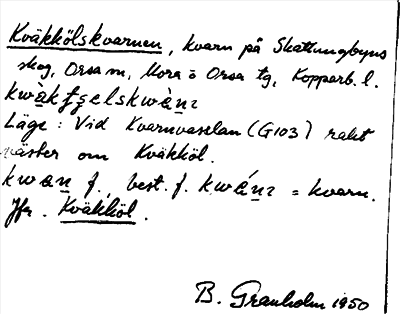 Kväkkölskvarnen, kvarn på Skattungbyns
skog, Orsa sn, Mora o Orsa tg, Kopparb. l.
Läge: Vid Kvarnvaselan (G103) rakt
väster om Kväkköl.
kwan f., best. f. kwánɿ = kvarn.
Jfr. Kväkköl.
B. Granholm 1950